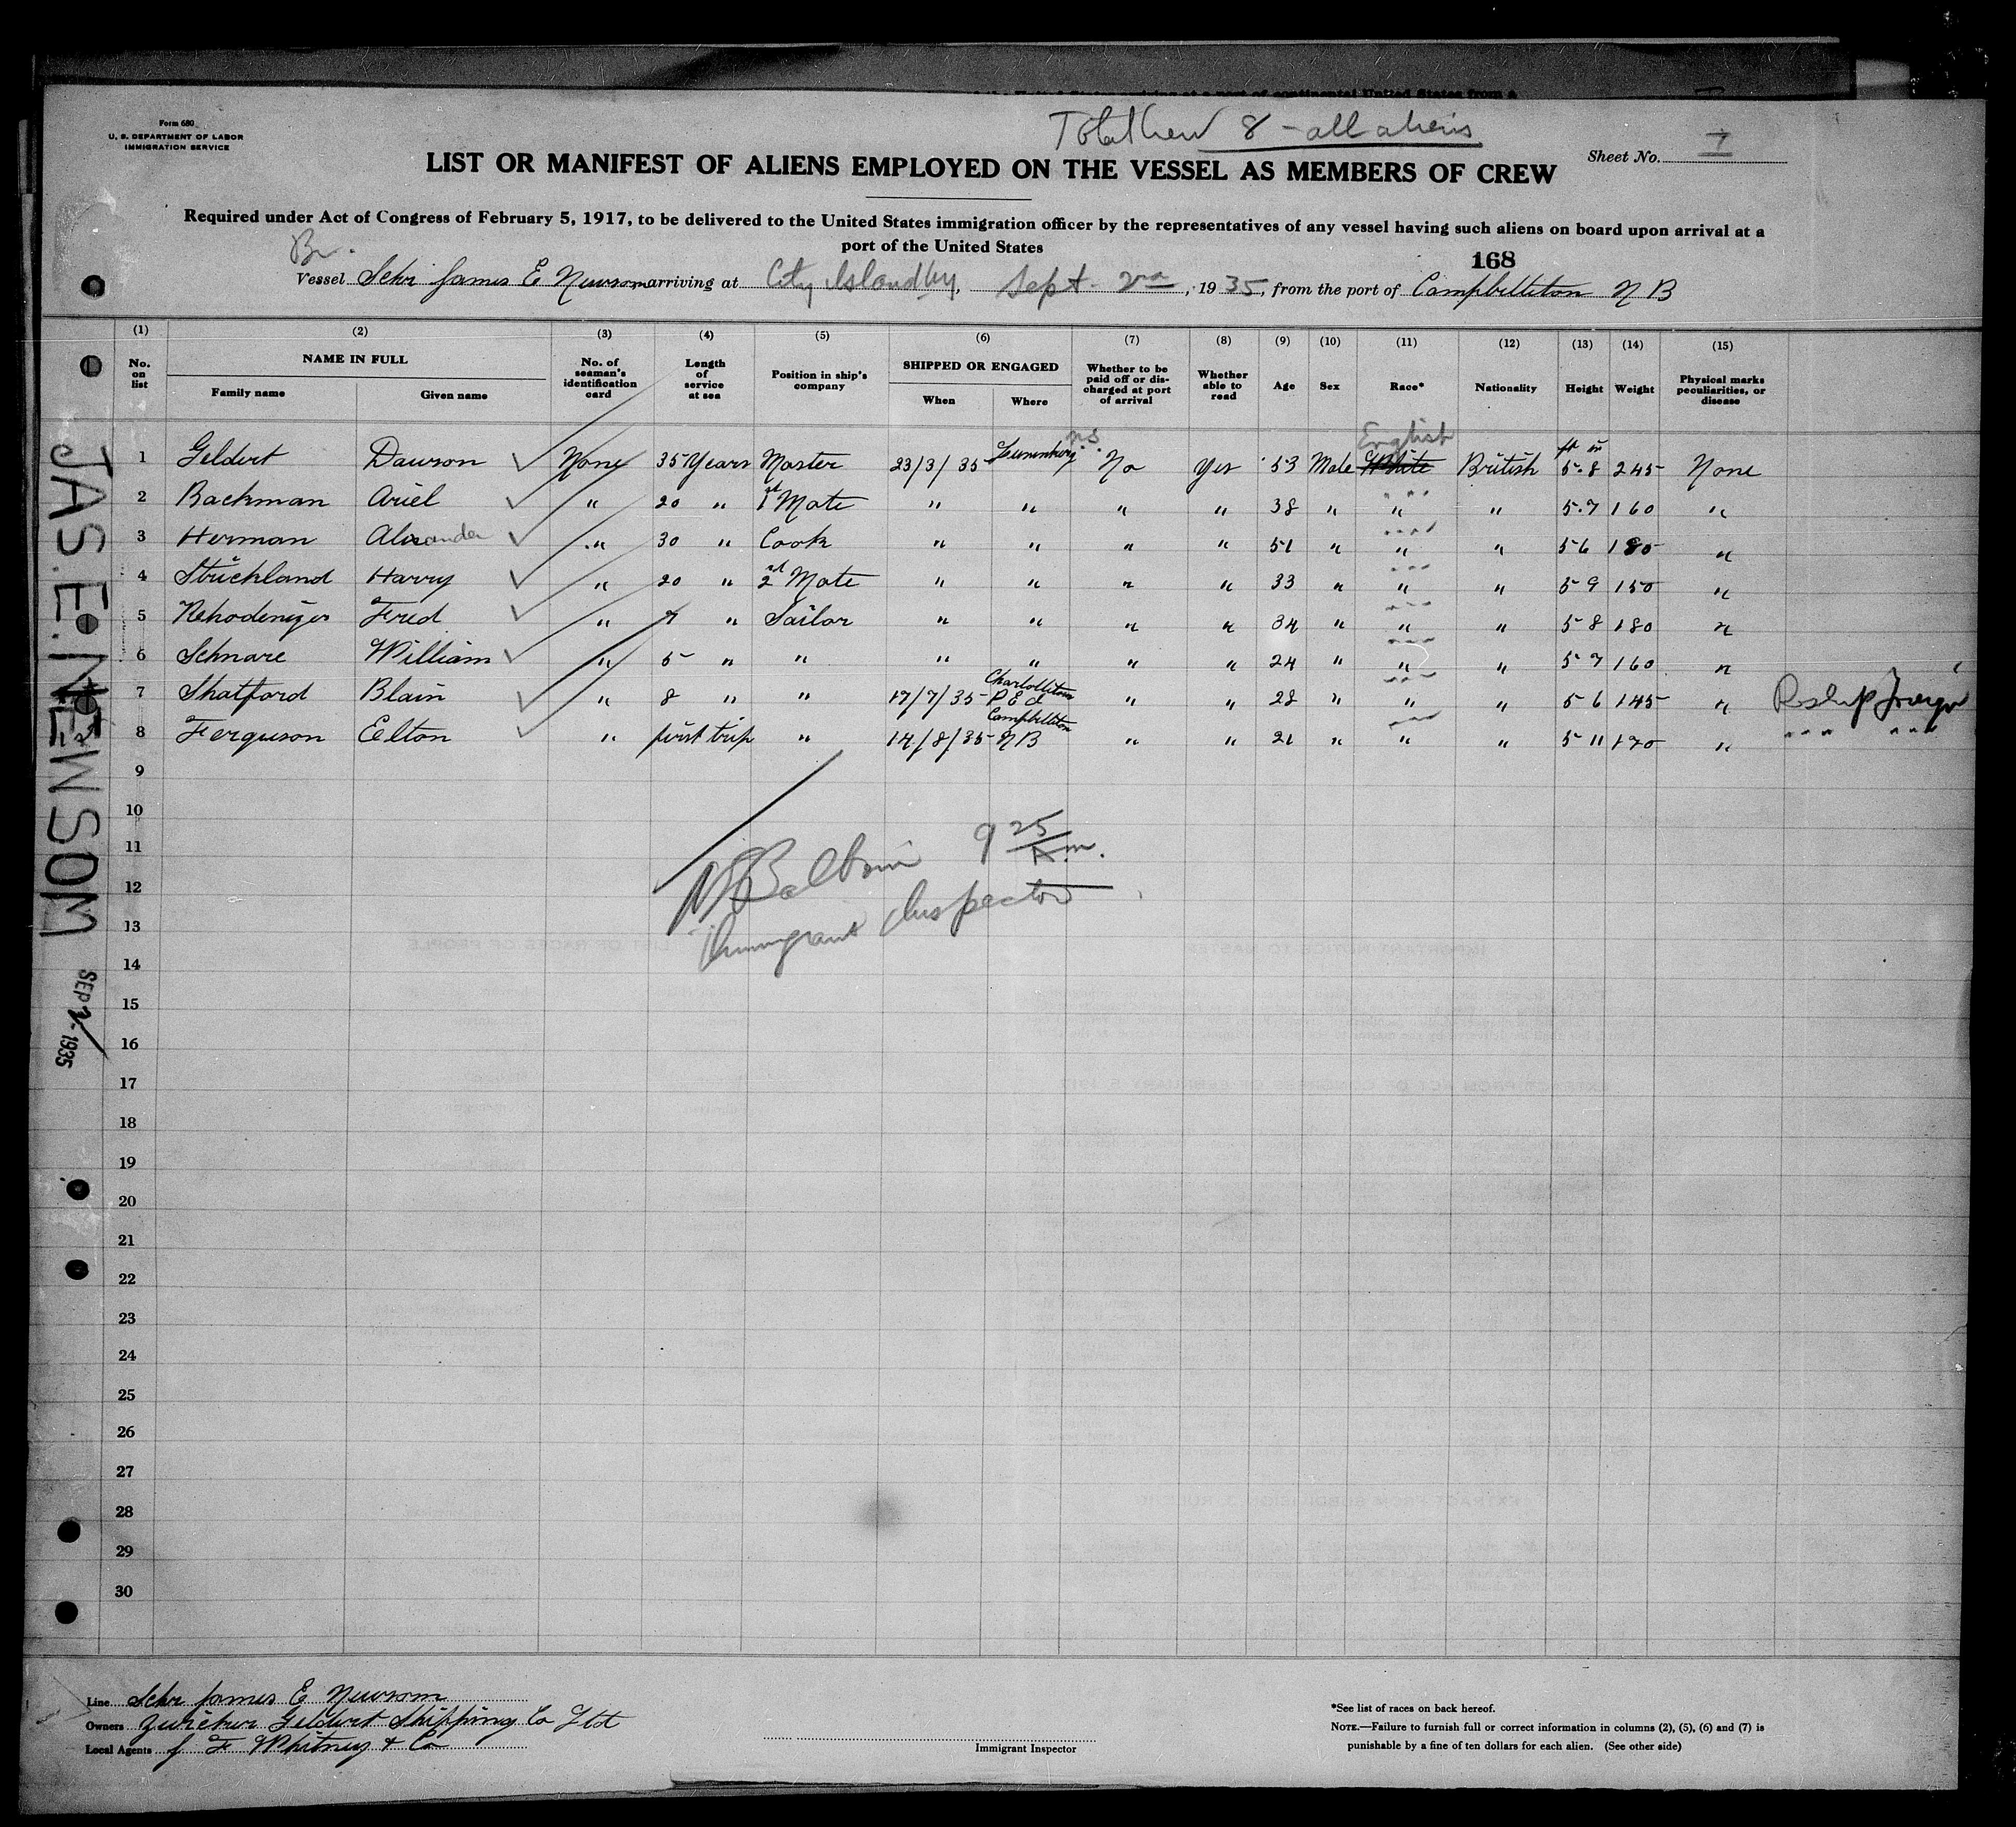 Form 680
U. S. DEPARTMENT OF LABOR
IMMIGRATION SERVICE
Total Crew 8 - all aliens
Sheet No. I
LIST OR MANIFEST OF ALIENS EMPLOYED ON THE VESSEL AS MEMBERS OF CREW
Required under Act of Congress of February 5, 1917, to be delivered to the United States immigration officer by the representatives of any vessel having such aliens on board upon arrival at a
port of the United States
168
Br.
Vessel Schr James E Newsom arriving at City Island Ny, Sept. 2nd, 1935, from the port of Campbellton N B
(1) (2) (3) (4) (5) (6) (7) (8) (9) (10) (11) (12) (13) (14) (15)
No. on list NAME IN FULL Family name Given name No. of seaman's identification card Length of service at sea Position in ship's company SHIPPED OR ENGAGED When Where Whether to be paid off or discharged at port of arrival Whether able to read Age Sex Race* Nationality Height Weight Physical marks peculiarities, or disease
1 Geldert Dawson None 35 Years Master 23/3/35 Lunenburg N.S. No Yes 53 Male White English British ft in 5.8 245 None
2 Backman Ariel " 20 " 1st Mate " " " " 38 " " " 5.7 160 "
3 Herman Alexander " 30 " Cook " " " " 51 " " " 5 6 180 "
4 Strickland Harry " 20 " 2nd Mate " " " " 33 " " " 5 9 150 "
5 Fred " 7 " Sailor " " " " 34 " " " 5 8 180 "
6 Schnare William " 5 " " " " " " 24 " " " 5 7 160 "
7 Shatford Blain " 8 " " 17/7/35 P E I " " 28 " " " 5 6 145 "
8 Ferguson Eelton " first trip " 14/8/35 Campbellton N B " " 21 " " " 5 11 170 "
9
10
11
12
13
14
15
16
17
18
19
20
21
22
23
24
25
26
27
28
29
30
Baldwin 9 25 A.m.
Immigrant Inspector
JAS. E. NEWSOM
SEP 2 - 1935
Line Schr James E Newsom
Owners Zwicker Geldert Shipping Co Ltd
Local Agents J F Whitney & Co
Immigrant Inspector
*See list of races on back hereof.
NOTE.—Failure to furnish full or correct information in columns (2), (5), (6) and (7) is
punishable by a fine of ten dollars for each alien. (See other side)